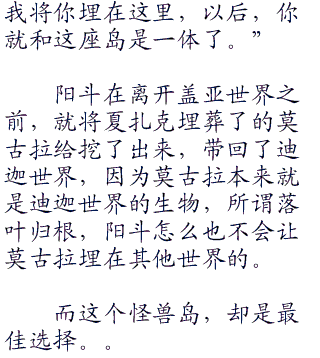 我将你埋在这里，以后，你
就和这座岛是一体了。”
阳斗在离开盖亚世界之
前，就将夏扎克埋葬了的莫
古拉给挖了出来，带回了迪
迦世界，因为莫古拉本来就
是迪迦世界的生物，所谓落
叶归根，阳斗怎么也不会让
莫古拉埋在其他世界的。
而这个怪兽岛，却是最
佳选择。。